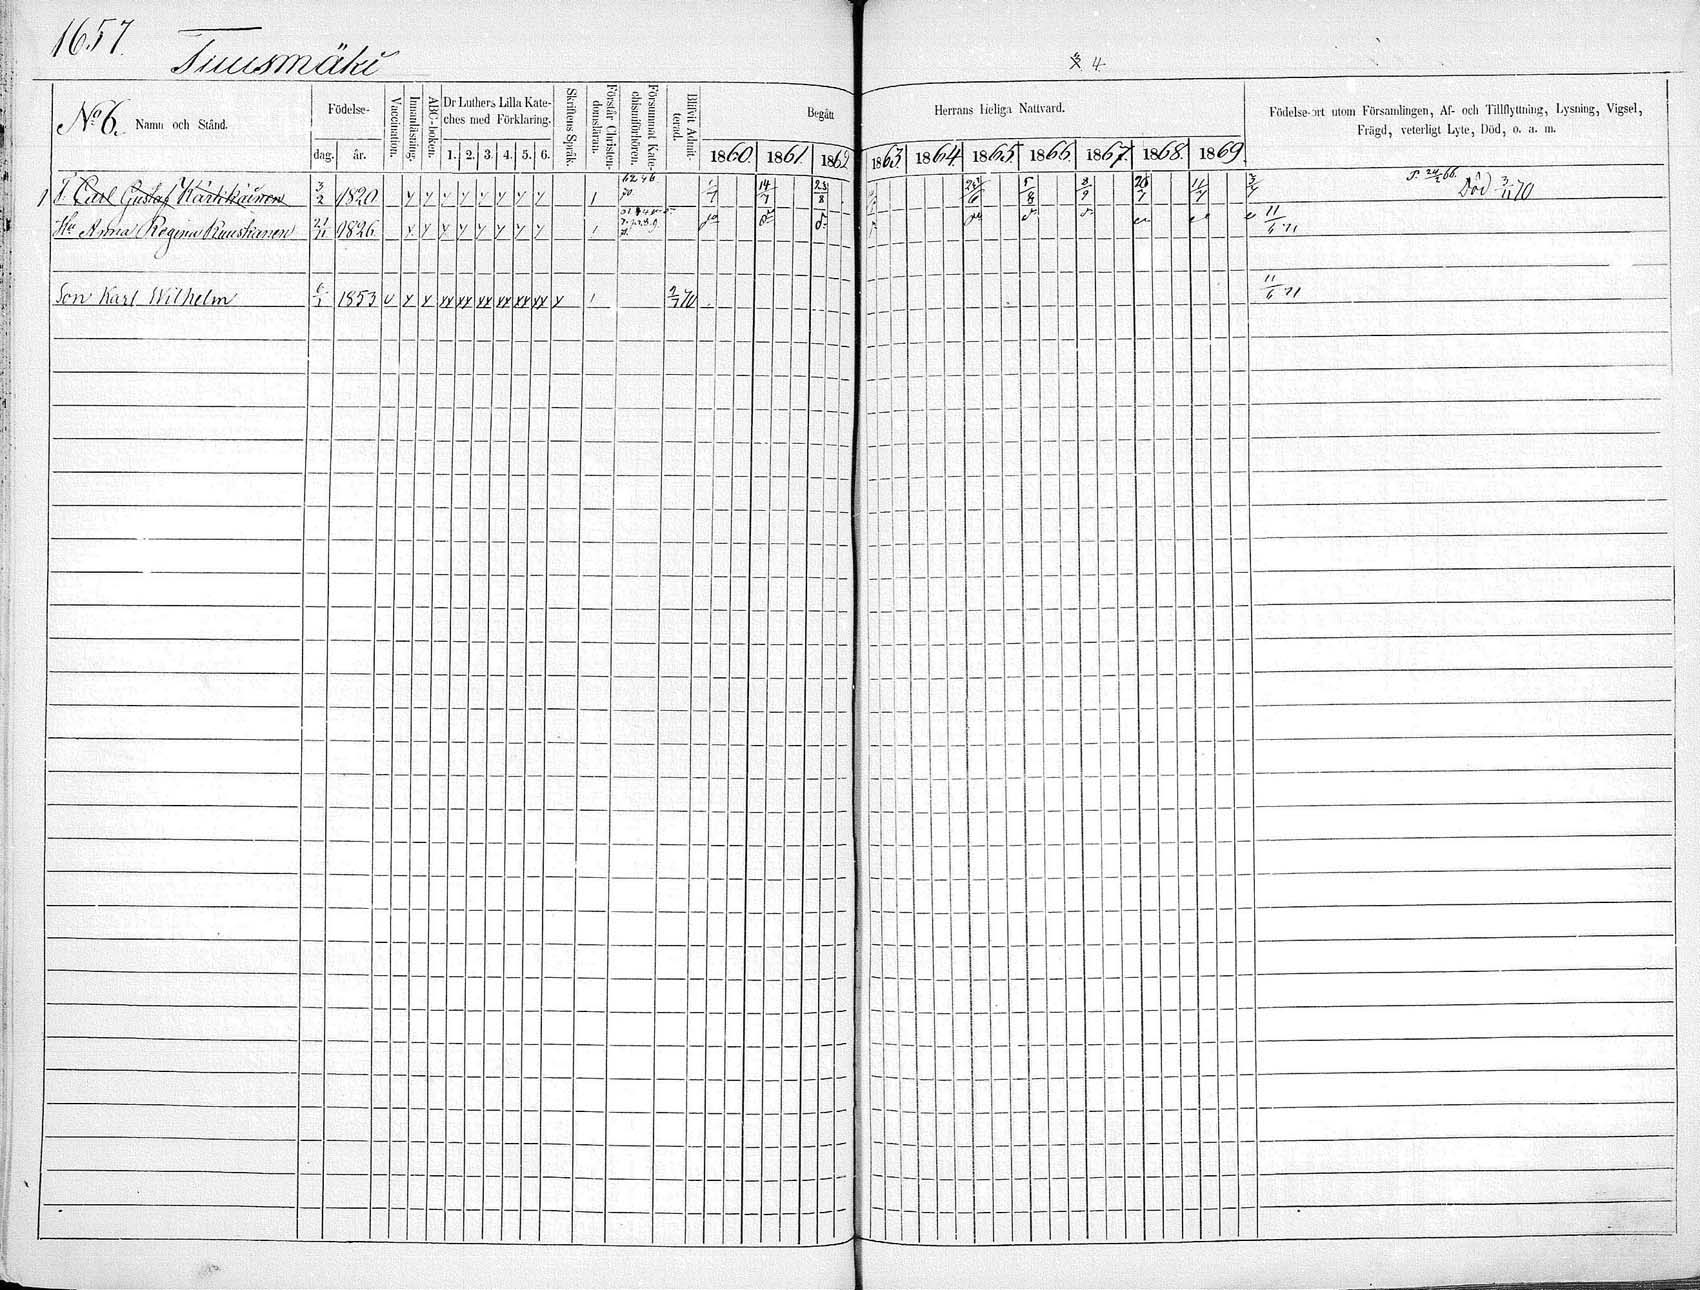 1657.
Tuusmäki
4
No 6. Namn och Stånd.
Födelse-
dag. år.
Vaccination.
Innanläsning.
ABC-boken.
Dr Luthers Lilla Kate-
ches med Förklaring.
1. 2. 3. 4. 5. 6.
Skriftens Språk.
Förstår Christen-
domsläran.
Försummat Kate-
chismiförhören.
Blifvit Admit-
terad.
Begått Herrans Heliga Nattvard.
1860. 1861. 1862. 1863 1864. 1865. 1866. 1867. 1868. 1869.
Födelse-ort utom Församlingen, Af- och Tillflyttning, Lysning, Vigsel,
Frägd, veterligt Lyte, Död, o. a. m.
1 Carl Gustaf Kärkkäinen 3/2 1820 y y y y y y y y 1 14/7 23/8 5/8 8/9 11/7 Död 3/11 70
Hu Anna Regina Ruuskanen 21/11 1826 y y y y y y y y 1 11/6 71
Son Karl Wilhelm 1853 v x x xx xx xx xx xx xx x 1 2/7 70 11/6 71